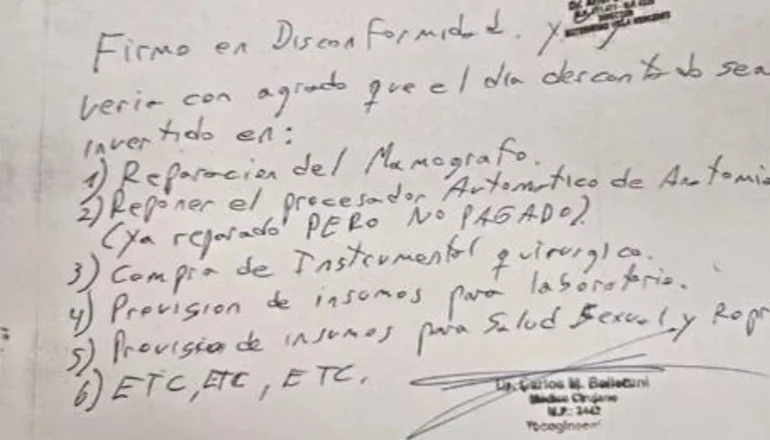 Firmo en Disconformidad. Y
veria con agrado que el día descontado sea
invertido en:
1) Reparacion del Mamografo.
2) Reponer el procesador Automatico de Anatomia
(Ya reparado PERO NO PAGADO).
3) Compra de Instrumental quirurgico.
4) Provision de insumos para laboratorio.
5) Provision de insumos para Salud Sexual y Repr
6) ETC, ETC, ETC.
Dr. Carlos M.
Médico Cirujano
M.P.: 2442